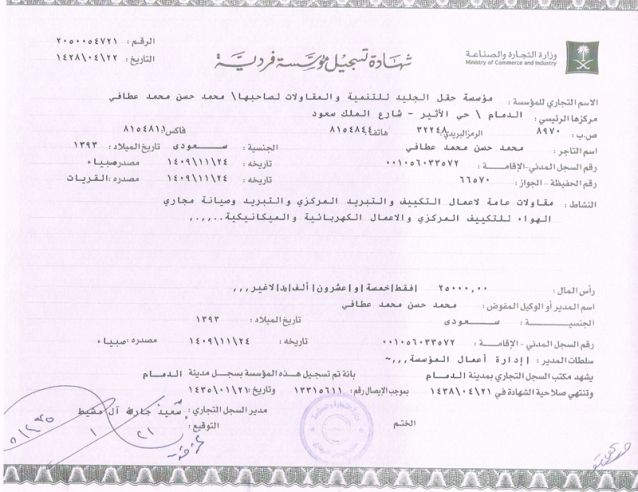 الرقم : ٢٠٥٠٠٥٤٧٢١
التاريخ : ١٤٢٨/٠٤/٢٢
شهادة تسجيل مؤسسة فردية
وزارة التجارة والصناعة
Ministry of Commerce and Industry
الاسم التجاري للمؤسسة : مؤسسة حقل الجليد للتنمية والمقاولات لصاحبها \ محمد حسن محمد عطافي
مركزها الرئيسي : الدمام \ حي الأثير - شارع الملك سعود
ص.ب : ٨٩٧٠ الرمز البريدي ٣٢٢٤٨ هاتف ٨١٥٤٨٤٤ فاكس ٨١٥٤٨١١
اسم التاجر : محمد حسن محمد عطافي الجنسية : سعودى تاريخ الميلاد : ١٣٩٣
رقم السجل المدني - الإقامة : ٠٠١٠٥٦٠٣٣٥٧٢ تاريخه : ١٤٠٩/١١/٢٤ مصدره صبياء
رقم الحفيظة - الجواز : ٦٦٥٧٠ تاريخه : ١٤٠٩/١١/٢٤ مصدره : القريات
النشاط : مقاولات عامة لاعمال التكييف والتبريد المركزي والتبريد وصيانة مجاري
الهواء للتكييف المركزي والاعمال الكهربائية والميكانيكية
رأس المال : ٢٥٠٠٠,٠٠ | فقط | خمسة | و | عشرون | ألف | لاغير ,,,
اسم المدير أو الوكيل المفوض : محمد حسن محمد عطافي
الجنسية : سعودى تاريخ الميلاد : ١٣٩٣
رقم السجل المدني - الإقامة : ٠٠١٠٥٦٠٣٣٥٧٢ تاريخه : ١٤٠٩/١١/٢٤ مصدره : صبياء
سلطات المدير : | إدارة أعمال المؤسسة ,,,~
يشهد مكتب السجل التجاري بمدينة الدمام بانة تم تسجيل هذه المؤسسة بسجل مدينة الدمام
وتنتهي صلاحية الشهادة في ١٤٣٨/٠٤/٢١ بموجب الإيصال رقم : ١٣٣١٥٦١١ وتاريخ : ١٤٣٥/٠١/٢١
مدير السجل التجاري : سعيد جارالله آل مشيط
الختم التوقيع :